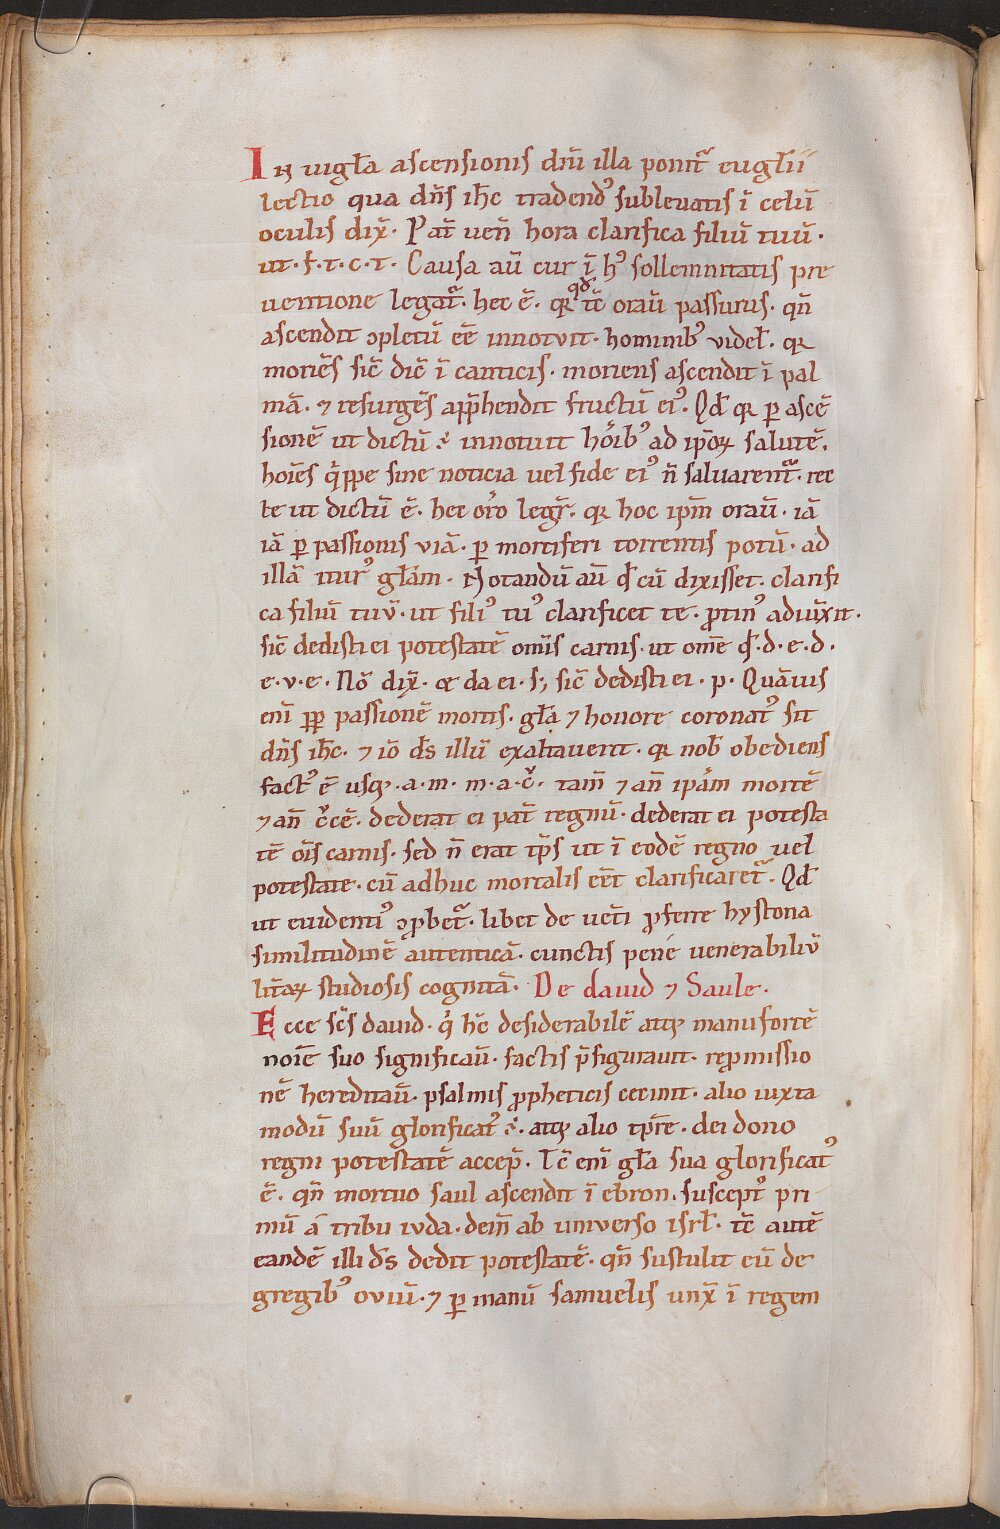 In uigł̄a ascensionis dnī illa ponit᷑ euglīi
lectio qua dn̄s ih̄c tradendꝰ subleuatis ī celū
oculis dix̄. Pat̄ uen̄ hora clarifica filiū tuū.
ut. f. t. c. t. Causa aū cur ī hꝰ sollemnitatis pre
uentione legat᷑. hec ē. qꝛ qđ tc̄ orau̅ passurus. qn̄
ascendit ɔpletū eē innotuit. hominibꝰ videł. qꝛ
moriēs sic̄ dic̄ ī canticis. moriens ascendit ī pal
mā. ⁊ resurgēs app̄hendit fructū eiꝰ. Qđ qꝛ ꝑ ascē
sionē ut dictū ÷ innotuit hoīb᷒ ad ip̄oꝝ salutē.
hoīes q̍ppe sine noticia uel fide eiꝰ n̄ saluarent᷑. rec
te ut dictū ē. hec oro̅ legr̄. qꝛ hoc ip̄m orau̅. iā
iā ꝑ passionis viā. ꝑ mortiferi torrentis potū. ad
illā iturꝰ głam. Notandū aū qđ cū dixisset. clarifi
ca filiū tuū. ut filiꝰ tuꝰ clarificet te. ꝓtinꝰ adiūxit.
sic̄ dedisti ei potestatē omīs carnis. ut omē qđ. d. e. d.
e. v. e. Nō dix̄. ⁊ da ei. s;, sic̄ dedisti ei. p. Quāuis
enī ꝓp passionē mortis. głā ⁊ honore coronatꝰ sit
dn̄s ih̄c. ⁊ iō dš illū exaltauerit. qꝛ nob̄ obediens
factꝰ ē usqꝫ. a. m. m. a. c̄. tam̄ ⁊ an̄ ipām mortē
⁊ an̄ c̄cē. dederat ei pat̄ regnū. dederat ei potesta
tē oīs carnis. sed n̄ erat tp̄s ut ī eodē regno uel
potestate. cū adhuc mortalis eēt clarificaret᷑. Qđ
ut euidentiꝰ ɔꝓbet᷑. libet de uet̄i ꝓferre hystoria
similitudinē autenticā. cunctis pene uenerabiliū
litt̄aꝝ studiosis cognitā. De dauid ⁊ Saule.
Ecce sc̄s dauid. q̍ hc̄ desiderabilē atqꝫ manu fortē
noīe suo significau̅. factis p̄figurauit. repromissio
nē hereditau̅. psalmis ꝓpheticis cecinit. alio iuxta
modū suū glorificatꝰ ÷. atqꝫ alio tp̄re. dei dono
regni potestatē accep̄. Tc̄ enī głā sua glorificatꝰ
ē. qn̄ mortuo saul ascendit ī ebron. susceptꝰ pri
mū a tribu iuda. dein̄ ab universo isrł. tc̄ autē
eandē illi dš dedit potestatē. qn̄ sustulit eū de
gregibꝰ oviū. ⁊ ꝑ manū samuelis unx̄ ī regem